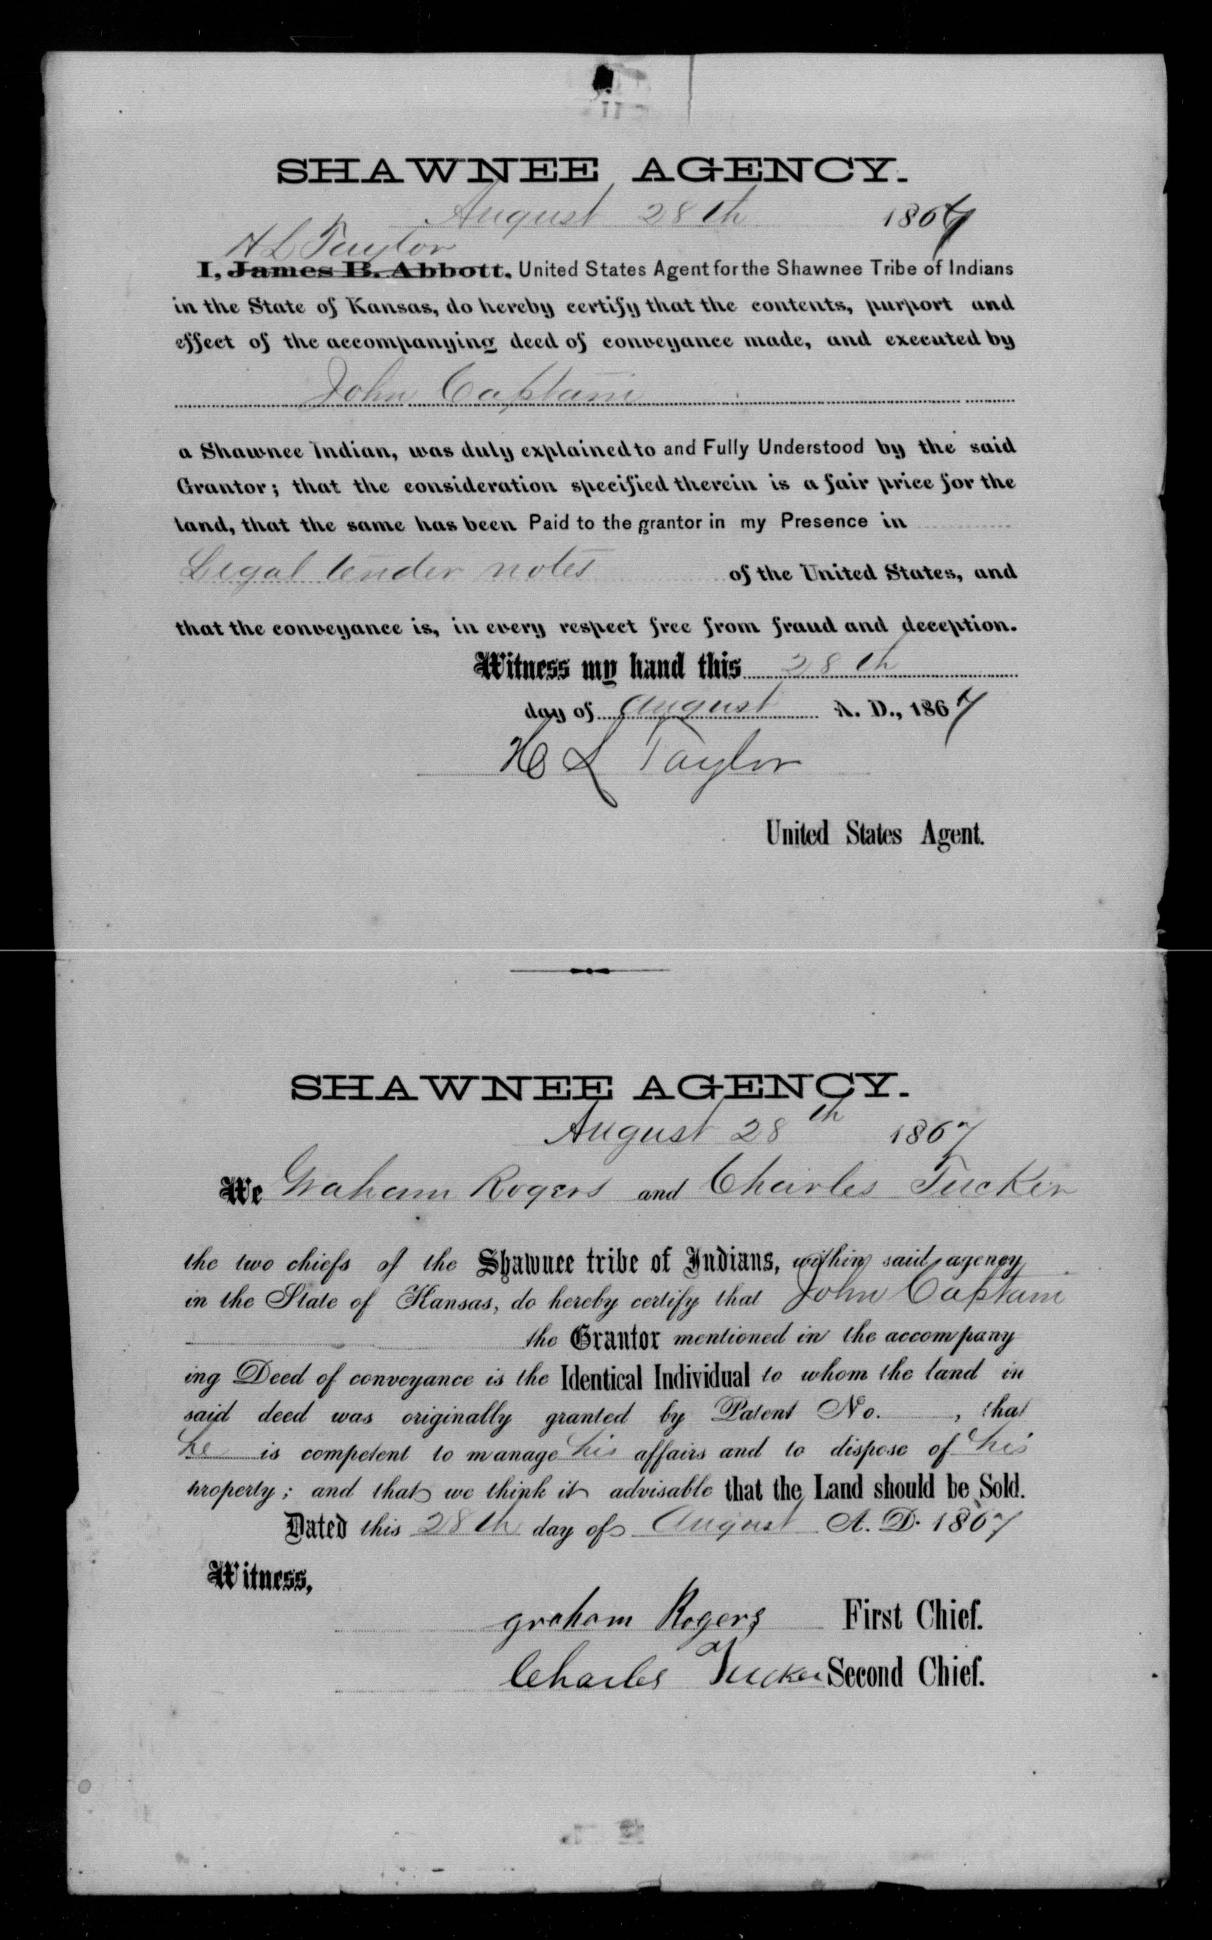 SHAWNEE AGENCY.
August 28th 1867
H L Taylor
I, James B. Abbott. United States Agent for the Shawnee Tribe of Indians
in the State of Kansas, do hereby certify that the contents, purport and
effect of the accompanying deed of conveyance made, and executed by
John Captain
a Shawnee Indian, was duly explained to and Fully Understood by the said
Grantor; that the consideration specified therein is a fair price for the
land, that the same has been Paid to the grantor in my Presence in
Legal tender notes of the United States, and
that the conveyance is, in every respect free from fraud and deception.
Witness my hand this 28th
day of August A. D., 1867
H L Taylor
United States Agent.
SHAWNEE AGENCY.
August 28th 1867
We Graham Rogers and Charles Tucker
the two chiefs of the Shawnee tribe of Indians, within said agency
in the State of Kansas, do hereby certify that John Captain
the Grantor mentioned in the accompany
ing Deed of conveyance is the Identical Individual to whom the land in
said deed was originally granted by Patent No. , that
he is competent to manage his affairs and to dispose of his
property; and that we think it advisable that the Land should be Sold.
Dated this 28th day of August A. D. 1867
Witness,
graham Rogers First Chief.
Charles Tucker Second Chief.